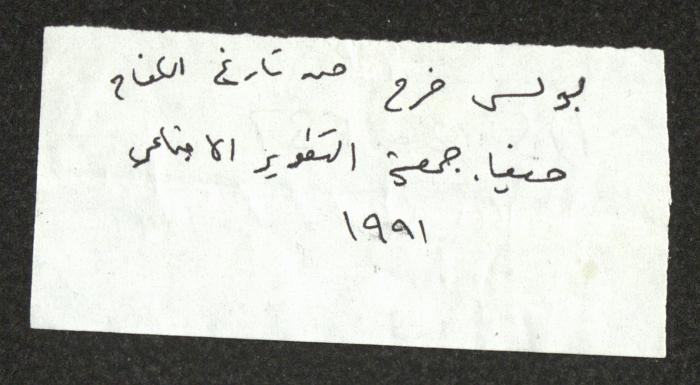 بولس فرح من تاريخ الكفاح
حيفا. جمعية التطوير الاجتماعي
١٩٩١